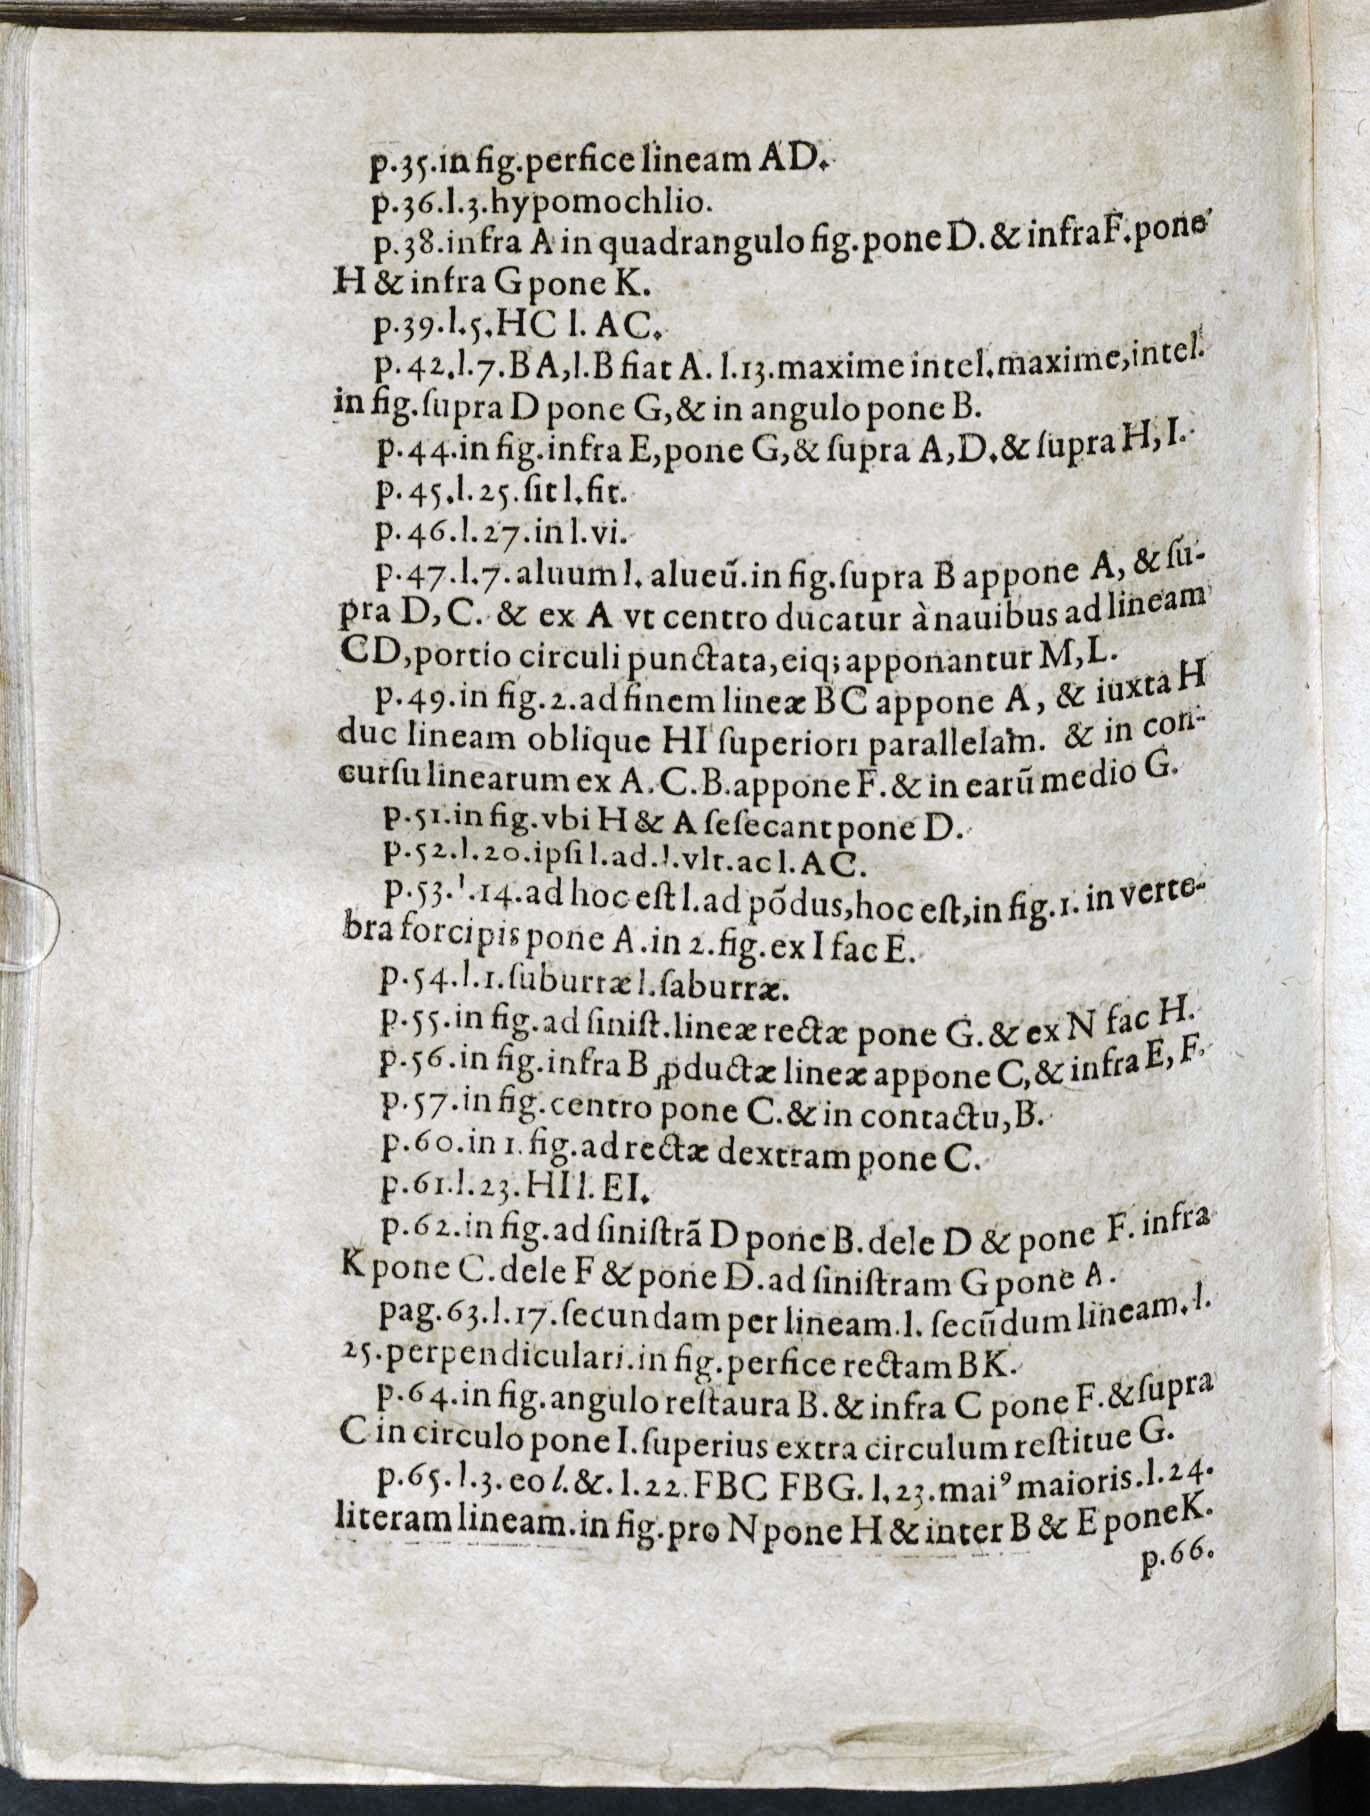 p.35.in fig.perfice lineam AD.
p.36.l.3.hypomochlio.
p.38.infra A in quadrangulo fig.pone D.& infra F.pone
H & infra G pone K.
p.39.l.5.HC l. AC.
p.42.l.7.BA,l.B fiat A. l.13.maxime intel.maxime,intel.
in fig.ſupra D pone G,& in angulo pone B.
p.44.in fig.infra E,pone G,& ſupra A,D.& ſupra H,I.
p.45.l.25.ſit l.fit.
p.46.l.27.in l.vi.
p.47.l.7.aluum l. alueũ.in fig.ſupra B appone A, & ſu-
pra D,C. & ex A vt centro ducatur à nauibus ad lineam
CD,portio circuli punctata,eiq; apponantur M,L.
p.49.in fig.2.ad finem lineæ BC appone A, & iuxta H
duc lineam oblique HI ſuperiori parallelam. & in con-
curſu linearum ex A.C.B.appone F.& in earũ medio G.
p.51.in fig.vbi H & A ſeſecant pone D.
p.52.l.20.ipſi l.ad.l.vlt.ac l.AC.
p.53.l.14.ad hoc eſt l.ad põdus,hoc eſt,in fig.1.in verte-
bra forcipis pone A.in 2.fig.ex I fac E.
p.54.l.1.ſuburræ l.ſaburræ.
p.55.in fig.ad ſiniſt.lineæ rectæ pone G.& ex N fac H.
p.56.in fig.infra B ꝓductæ lineæ appone C,& infra E,F.
p.57.in fig.centro pone C.& in contactu,B.
p.60.in 1.fig.ad rectæ dextram pone C.
p.61.l.23.HI l. EI.
p.62.in fig.ad ſiniſtrã D pone B.dele D & pone F.infra
K pone C.dele F & pone D.ad ſiniſtram G pone A.
pag.63.l.17.ſecundam per lineam.l. ſecũdum lineam.l.
25.perpendiculari.in fig.perfice rectam BK.
p.64.in fig.angulo reſtaura B.& infra C pone F.& ſupra
C in circulo pone I.ſuperius extra circulum reſtitue G.
p.65.l.3.eo l.&.l.22.FBC FBG.l.23.maiꝰ maioris.l.24.
literam lineam.in fig.pro N pone H & inter B & E pone K.
p.66.